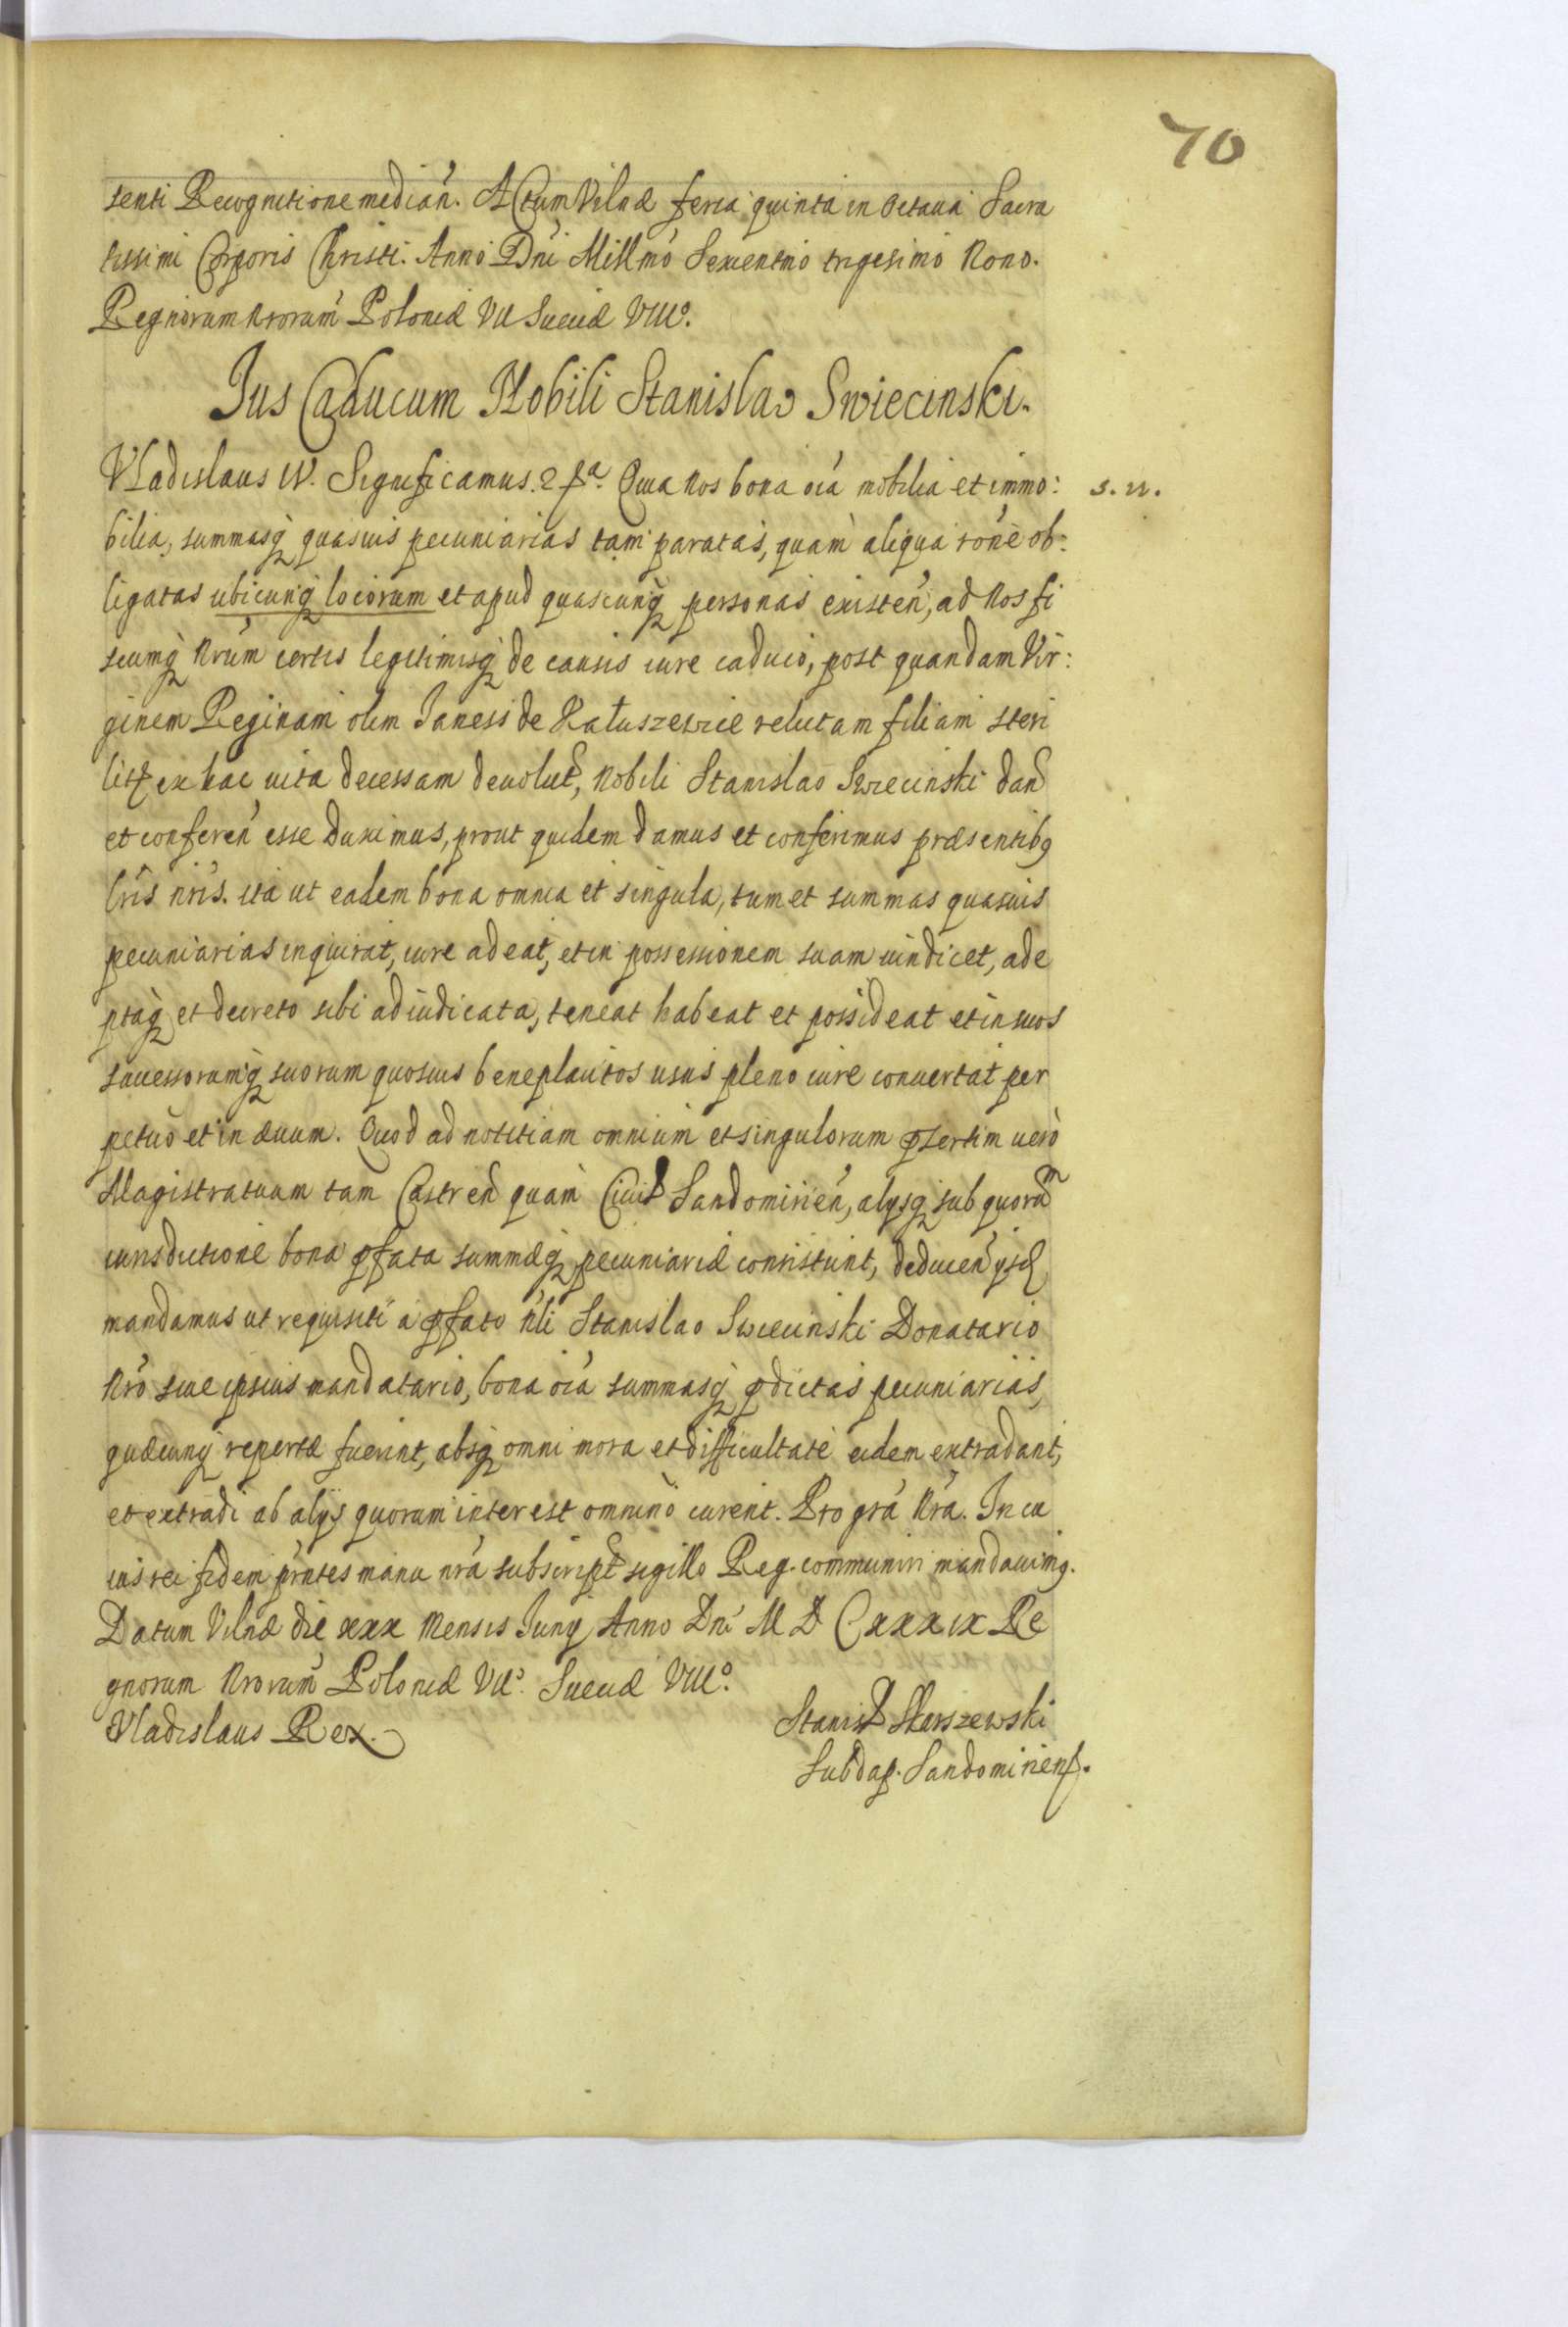 70
senti Recognitione median̄. Actum Vilnæ feria quinta in octaua Sacra
tissimi Corporis Christi. Anno Dn̄i Millmō Sexcentmō trigesimo Nono.
Regnorum nrorum̄ Poloniæ VII Sueciæ VIIIº.
Jus Caducum Nobili Stanislao Swiecinski.
Vladislaus IV. Significamus. Quia Nos bona oīa mobilia et immo: s. n.
bilia, summasq́ꝫ quasuis pecuniarias tam paratas, quàm aliqua rōne ob:
ligatas ubicunq́ꝫ locorum et apud quascunq́ꝫ personas existen̄, ad Nos fi
scumq́ꝫ Nrūm certis legitimisq́ꝫ de causis iure caduco, post quandam Vir:
ginem Reginam olim Janess de Hałuszewice relictam filiam steri
litꝫ ex hac uita decessam deuolut, Nobili Stanislao Swiecinski dan̄
et conferen̄ esse duximus, prout quidem damus et conferimus præsentibꝰ
lrīs nrīs. ita ut eadem bona omnia et singula, tum et summas quasuis
pecuniarias inquirat, iure adeat, et in possessionem suam uindicet, ade
ptaq́ꝫ et decreto sibi adiudicata, teneat habeat et possideat et in suos
successorumq́ꝫ suorum quosuis beneplacitos usus pleno iure conuertat per
petuò et in æuum. Quod ad notitiam omnium et singulorum p̄sertim uerò
Magistratuum tam Castren̄ quàm Ciuil Sandomirien̄, alysqꝫ sub quorum
iurisdictione bona p̄fata summæqꝫ pecuniariæ consistunt, deducen̄ ysd
mandamus ut requisiti a p̄fato Nli Stanislao Swiecinski Donatario
Nrō siue ipsius mandatario, bona oīa summasq́ꝫ p̄dictas pecuniarias,
quæcunqꝫ repertæ fuerint, absqꝫ omni mora et difficultate eidem extradant,
et extradi ab alys quorum interest omninò curent. Pro grā Nrā. In cu
ius rei fidem prn̄tes manu nrā subscript sigillo Reg. communiri mandauimꝰ.
Datum Vilnæ die xxx Mensis Juny Anno Dn̄i M D CXXXIX Re
gnorum Nrorum̄ Poloniæ VIIº. Sueciæ VIIIº.
Vladislaus Rex.
Stanisl Skarszewski
Subdap. Sandomiriens.